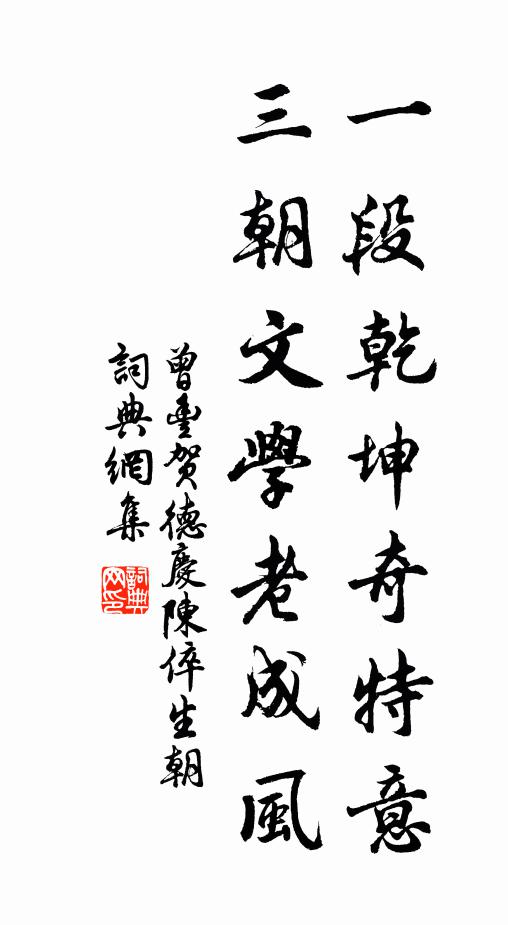 一段乾坤奇特意
三朝文學老成風
曾豐賀德慶陳倅生朝
詞典網集
詞典網印